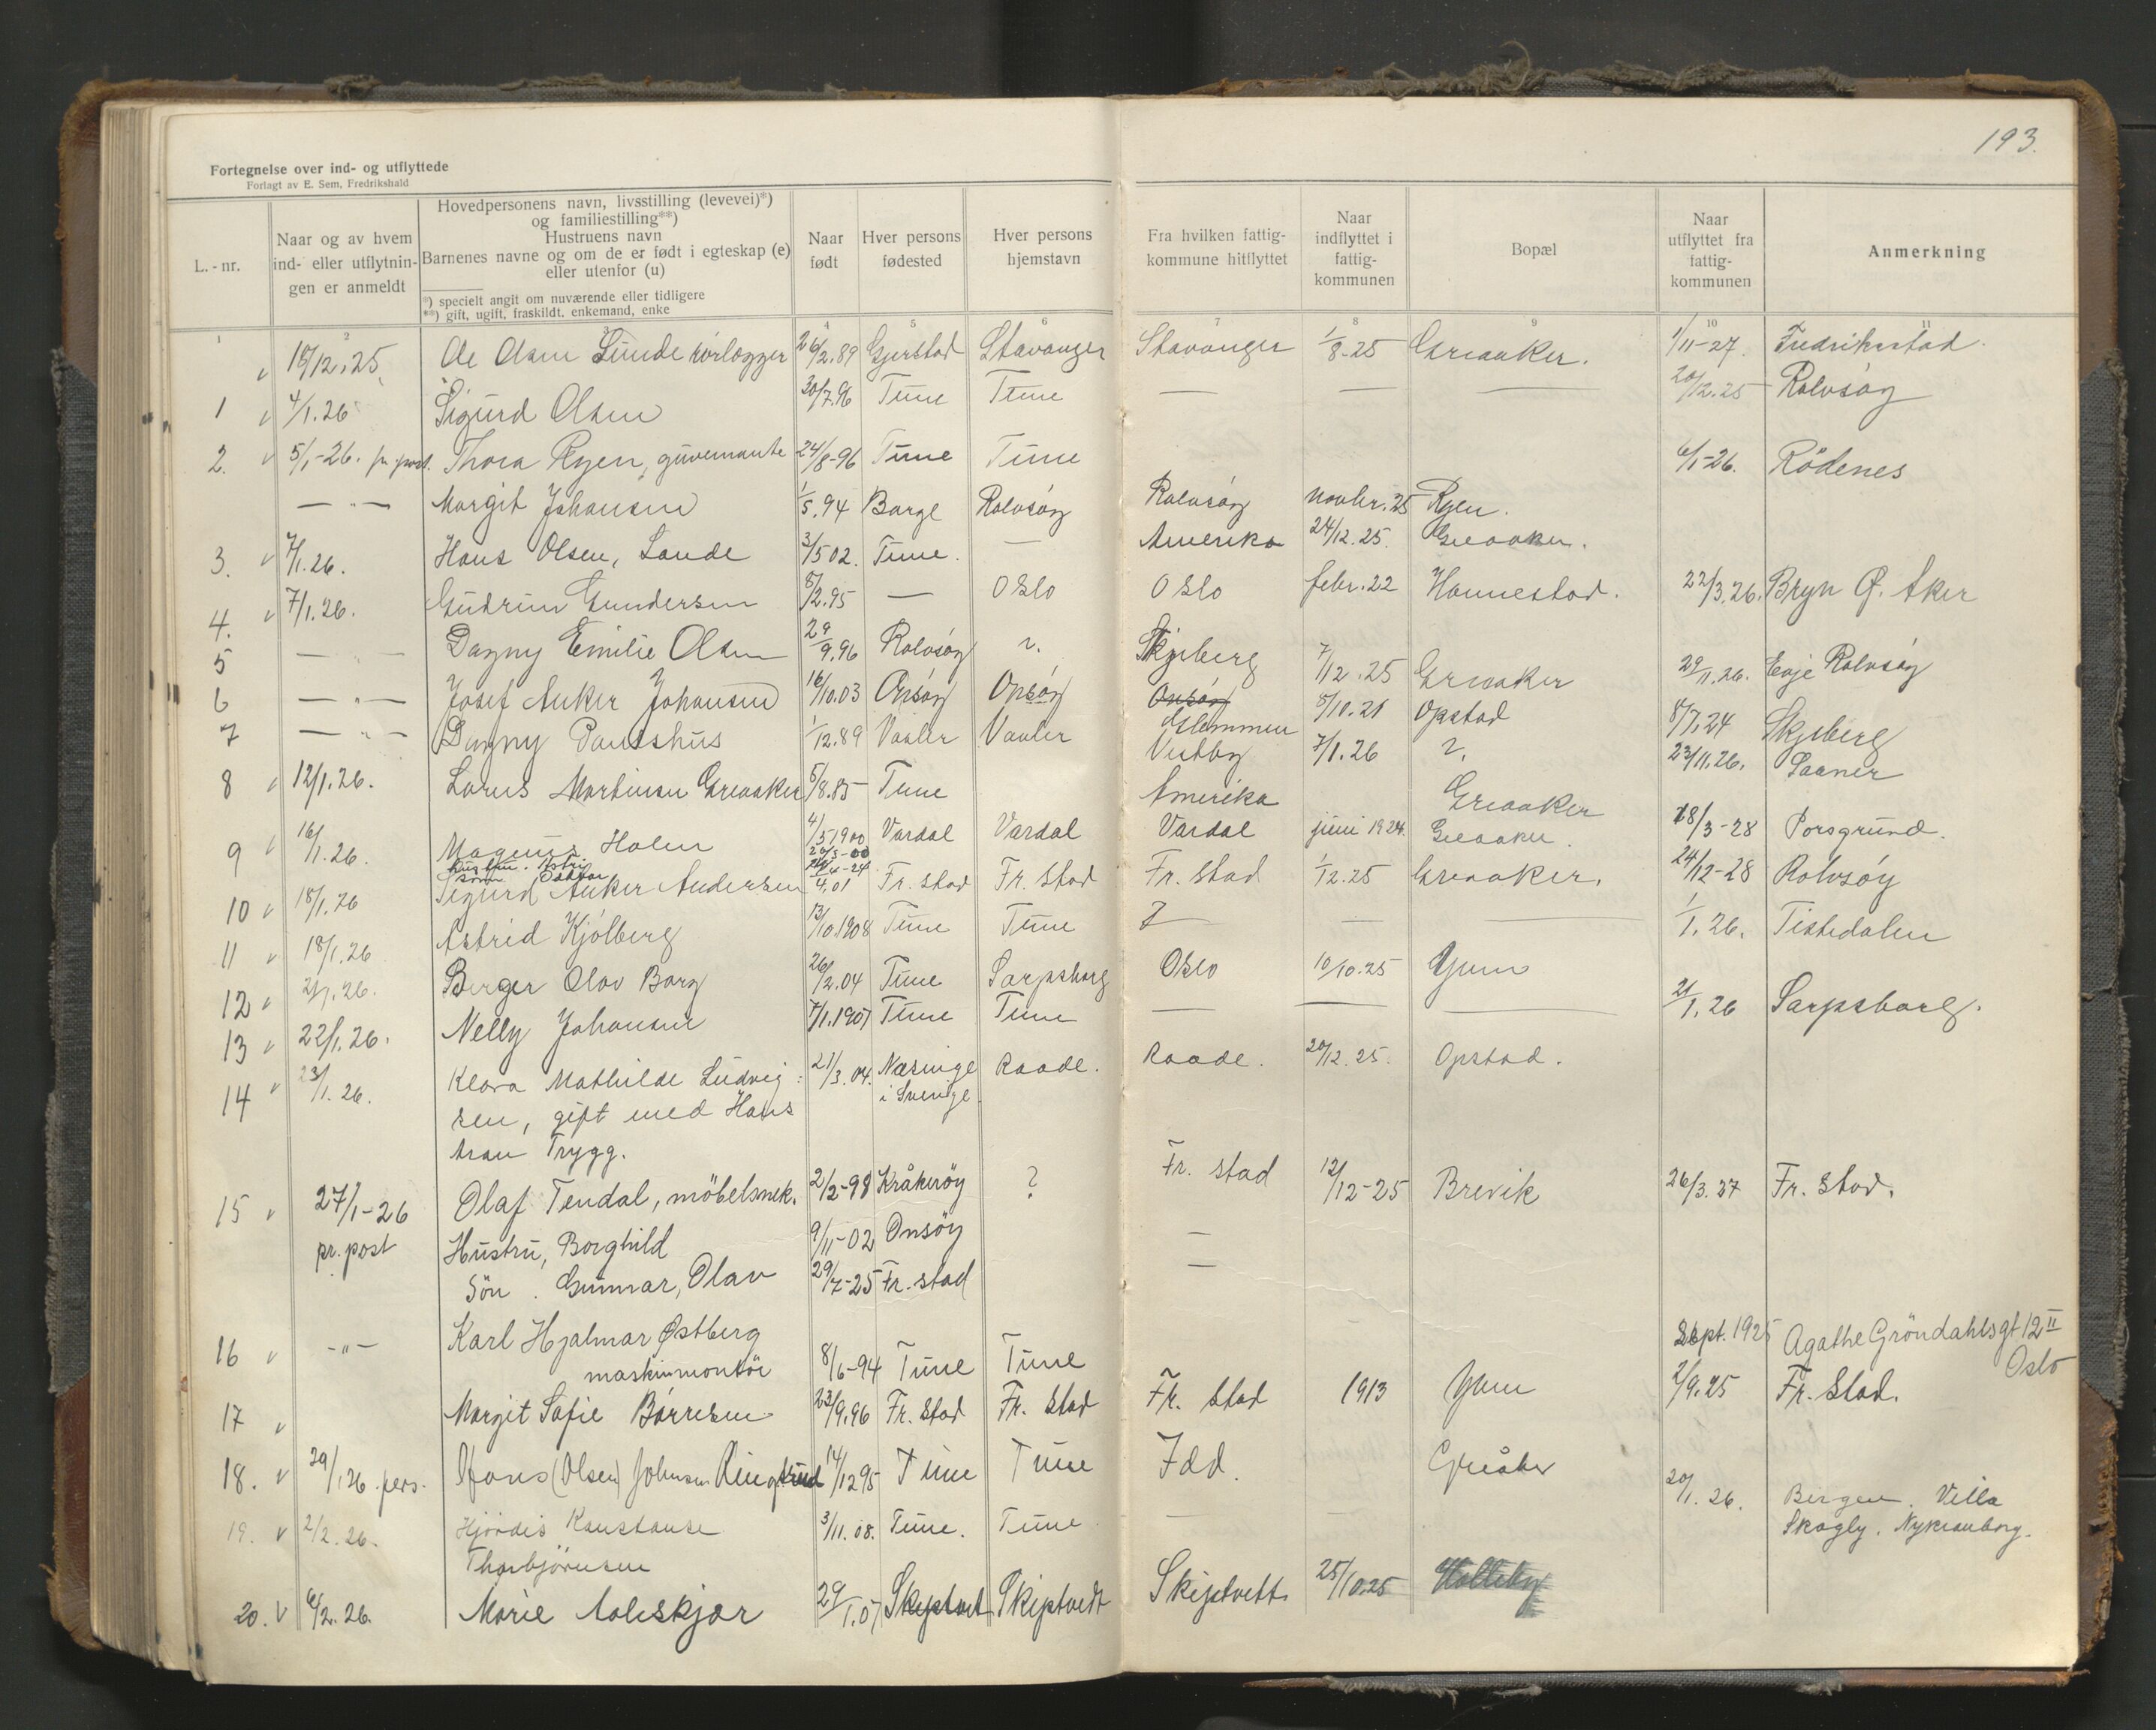 193.
Fortegnelse over ind- og utflyttede
Forlagt av E. Sem, Fredrikshald
L.-nr.
Naar og av hvem
ind- eller utflytnin-
gen er anmeldt
Hovedpersonens navn, livsstilling (levevei)*)
og familiestilling**)
Hustruens navn
Barnenes navne og om de er født i egteskap (e)
eller utenfor (u)
*) specielt angit om nuværende eller tidligere
**) gift, ugift, fraskildt, enkemand, enke
Naar
født
Hver persons
fødested
Hver persons
hjemstavn
Fra hvilken fattig-
kommune hitflyttet
Naar
indflyttet i
fattig-
kommunen
Bopæl
Naar
utflyttet fra
fattig-
kommunen
Anmerkning
1 2 3 4 5 6 7 8 9 10 11
15/12.25 Olsen Lunde rörlægger 26/2.89 Gjerstad Stavanger Stavanger 1/8-25 Greaaker. 1/11-27. Fredrikstad.
1 v 4/1.26 Sigurd Olsen 30/7.96 Tune Tune — — — 20/12.25 Rolvsöy
2. v 5/1-26. pr. post. Thora Ryen, guvernante 24/8-96 Tune Tune 6/1-26. Rödenes
— " — Margit Johansen 1/5.94 Borge Rolvsöy Rolvsöy novbr. 25 Ryen.
3. v 7/1.26. Hans Olsen, Lande 3/5 02. Tune. — Amerika 24/12.25. Greaaker.
4. v 7/1.26. Gudrun Gundersen 8/2.95 — Oslo Oslo febr. 22 Hannestad. 22/3.26. Bryn Ø. Aker
5 — " — Dagny Emilie Olsen 29/9.96 Rolvsöy ?. Skjeberg 7/12.25 Greaaker 29/11.26. Evje Rolvsöy
6 — " — Josef Anker Johansen 16/10.03 Onsöy Onsöy Onsöy 8/10.21 Opstad 8/7.24 Skjeberg
Glemmen
7 — " — Dagny Pautshus 1/12.89 Vaaler Vaaler Vestby 7/1.26 ?. 23/11.26. Saaner
8 v 12/1.26. Lorus Martinsen Greaaker 5/8.85 Tune Amerika Greaaker
9 v 16/1.26. Magnus Holen 4/5 1900 Vardal Vardal Vardal juni 1924. Greaaker. 18/3-28 Porsgrund.
Hustru. Astri 26/5-00
sön
10 v 18/1.26 Sigurd Anker Andersen 4.01 Fr. stad Fr. Stad Fr. Stad 1/12.25 Greaaker. 24/12-28 Rolvsöy
11 v 18/1.26 Astrid Kjölberg 13/10.1908 Tune Tune — — — 1/1.26. Tistedalen
12 v 21/1.26. Birger Olav Borg 26/2.04 Tune Sarpsborg Oslo 10/10.25 Yven
13 v 22/1.26. Nelly Johansen 7/1.1907 Tune Tune — — — 21/1.26 Sarpsborg.
14 v 23/1.26. Klara Mathilde Ludvig- 21/3.04. Næsinge Raade. Raade. 20/12.25. Opstad.
sen, gift med Hans i Sverige.
Aron Trygg.
15 v 27/1-26 Olaf Tendal, möbelsnek. 2/2-98 Kråkeröy ? Fr. stad 12/12-25 Brevik 26/3.27 Fr. Stad.
pr. post Hustru, Borghild 9/11-02 Onsöy —
Sön. Gunnar, Olav 29/7-25 Fr. stad —
16 v — " — Karl Hjalmar Østberg Sept. 1925 Agathe Gröndahlsgt 12 II
maskinmontör 8/6-94 Tune Tune Oslo
17 v Margit Sofie Börresen 23/9.96 Fr. Stad Fr. Stad Fr. Stad 1913 Yven 2/9.25 Fr. Stad.
18. v 29/1 26. pers. Hans (Olsen) Johnsen 14/12 95 Tune Tune Idd. Greåker
19. v 2/2.26. Hjördis Konstanse 3/11.08. Tune. Tune. — — 20/1.26. Bergen. Villa
Thorbjörnsen Skogly. Nykronborg.
20. v 6/2.26. Marie Aaleskjær 29/1.07 Skiptvet Skiptvedt Skiptvett 25/10.25 Holleby